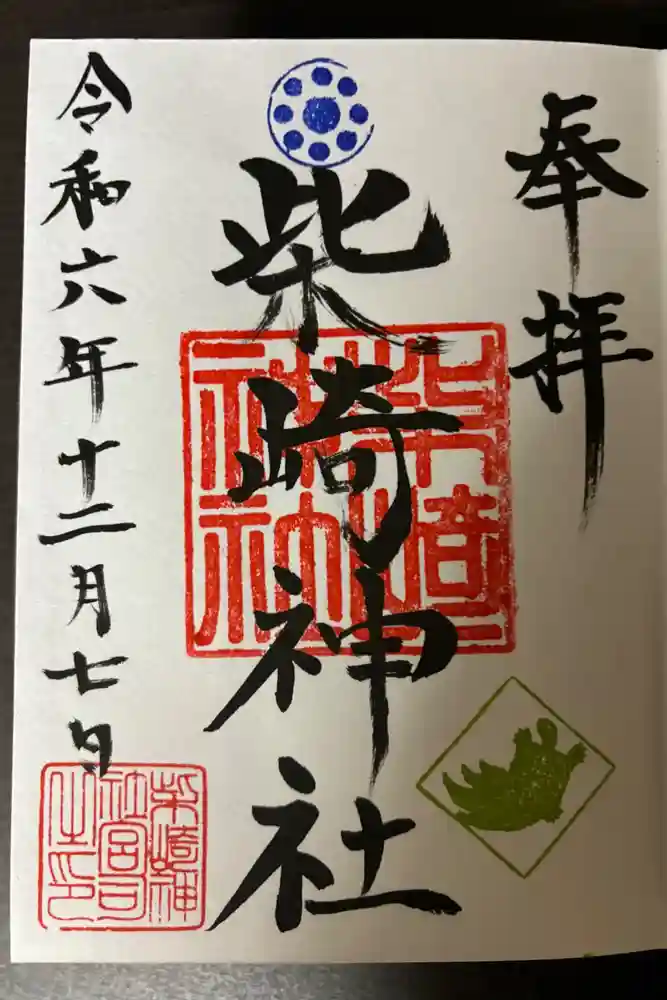 奉拝
柴崎神社
柴崎神社
令和六年十二月七日
柴崎神社宮司之印